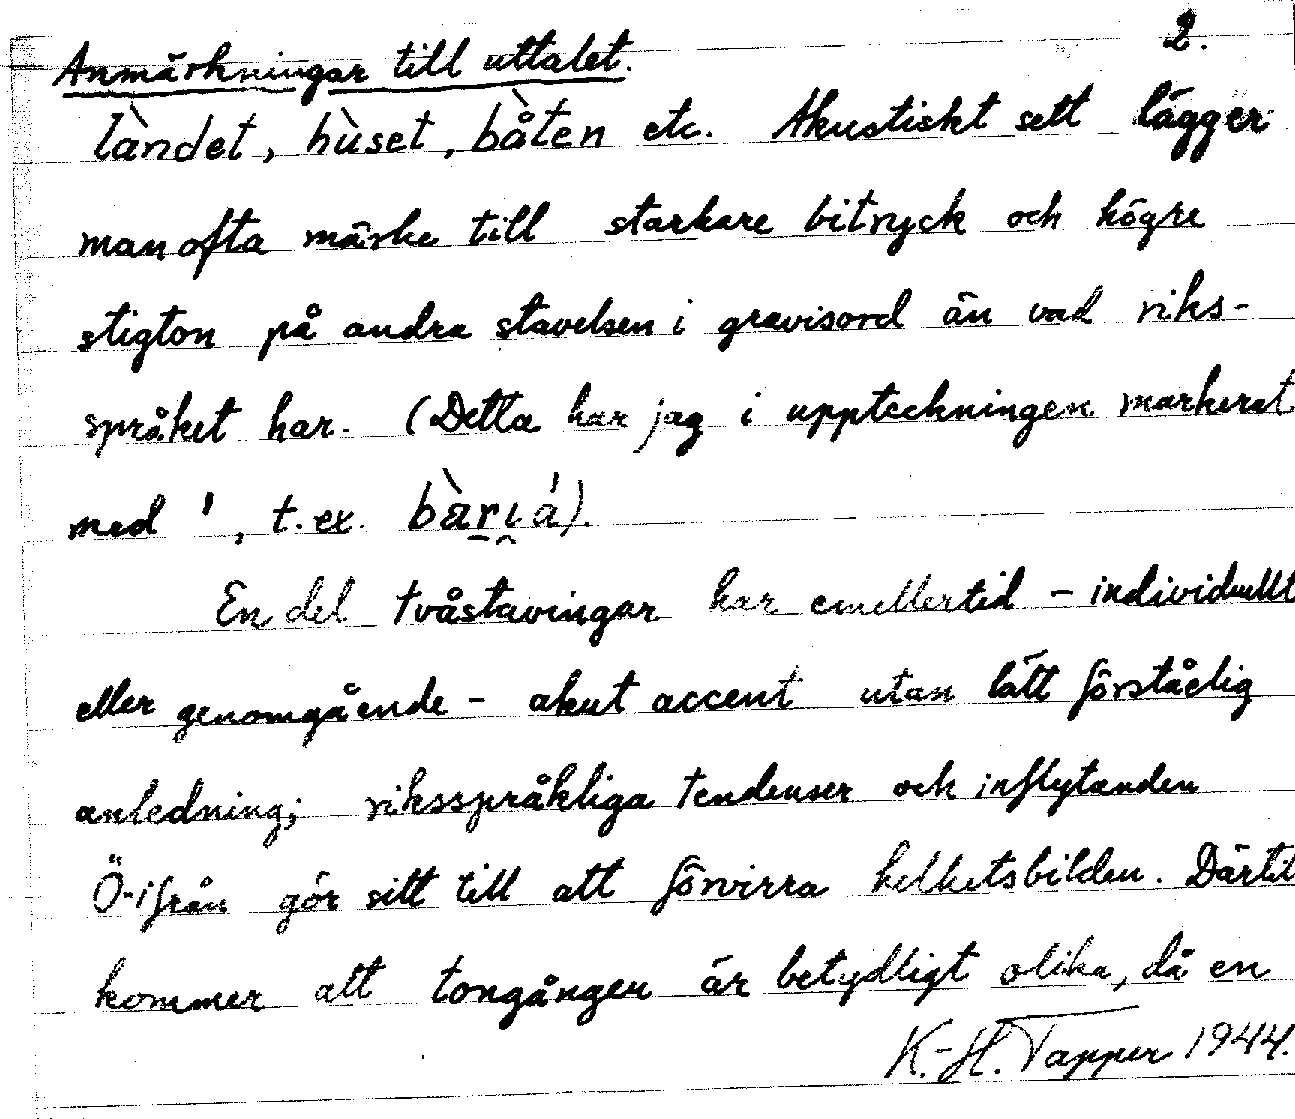 2.
Anmärkningar till uttalet.
làndet, hùset, bå̀ten etc. Akustiskt sett lägger
man ofta märke till starkare bitryck och högre
stigton på andra stavelsen i gravisord än vad riks-
språket har. (Detta har jag i uppteckningen markerat
med ˈ, t.ex. bàr̠ı̯á).
En del tvåstavingar har emellertid – individuellt
eller genomgående – akut accent utan lätt förståelig
anledning; riksspråkliga tendenser och inflytanden
Ö-ifrån gör sitt till att förvirra helhetsbilden. Därtill
kommer att tongången är betydligt olika, då en
K.-H. Tapper 1944.